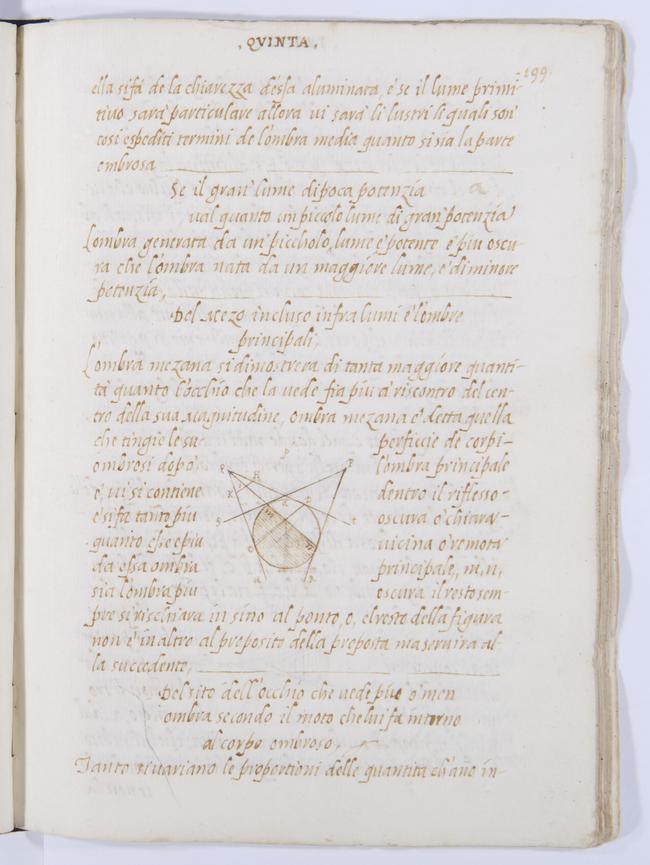 . QVINTA .
199
ella si fa de la chiarezza dessa aluminata, e se il lume primi-
tiuo sara particulare allora ui sara li lustri li quali son'
cosi espediti termini de l'ombra media quanto si na la parte
ombrosa
Se il gran' lume di poca potenzia
ual quanto un' piccolo lume di gran' potenzia
L'ombra generata da un' piccholo, lume e potente e piu oscu-
ra che l'ombra nata da un maggiore lume, e di minore
potenzia,
Del Mezo incluso infra lumi e l'ombre
principali,
L'ombra mezana si dimostrera di tanta maggiore quanti-
ta quanto l'occhio che la vede fia piu a riscontro del cen-
tro della sua Magnitudine, ombra mezana e detta quella
che tingie le su perficcie de corpi-
ombrosi dopo l'ombra principale
e, ui si contiene dentro il riflesso-
e si fa tanto piu oscura o chiara-
quanto che e piu uicina o remota
da essa ombra principale, m, n,
sia l'ombra piu oscura il resto sem-
pre si rischiara in sino al ponto, o, el resto della figura
non e in altro al proposito della proposta ma seruira al-
la succedente,
Del sito dell'occhio che vede piu o men
ombra secondo il moto che lui fa intorno
al corpo ombroso
Tanto si uariano le proportioni delle quantita ch'ano in-